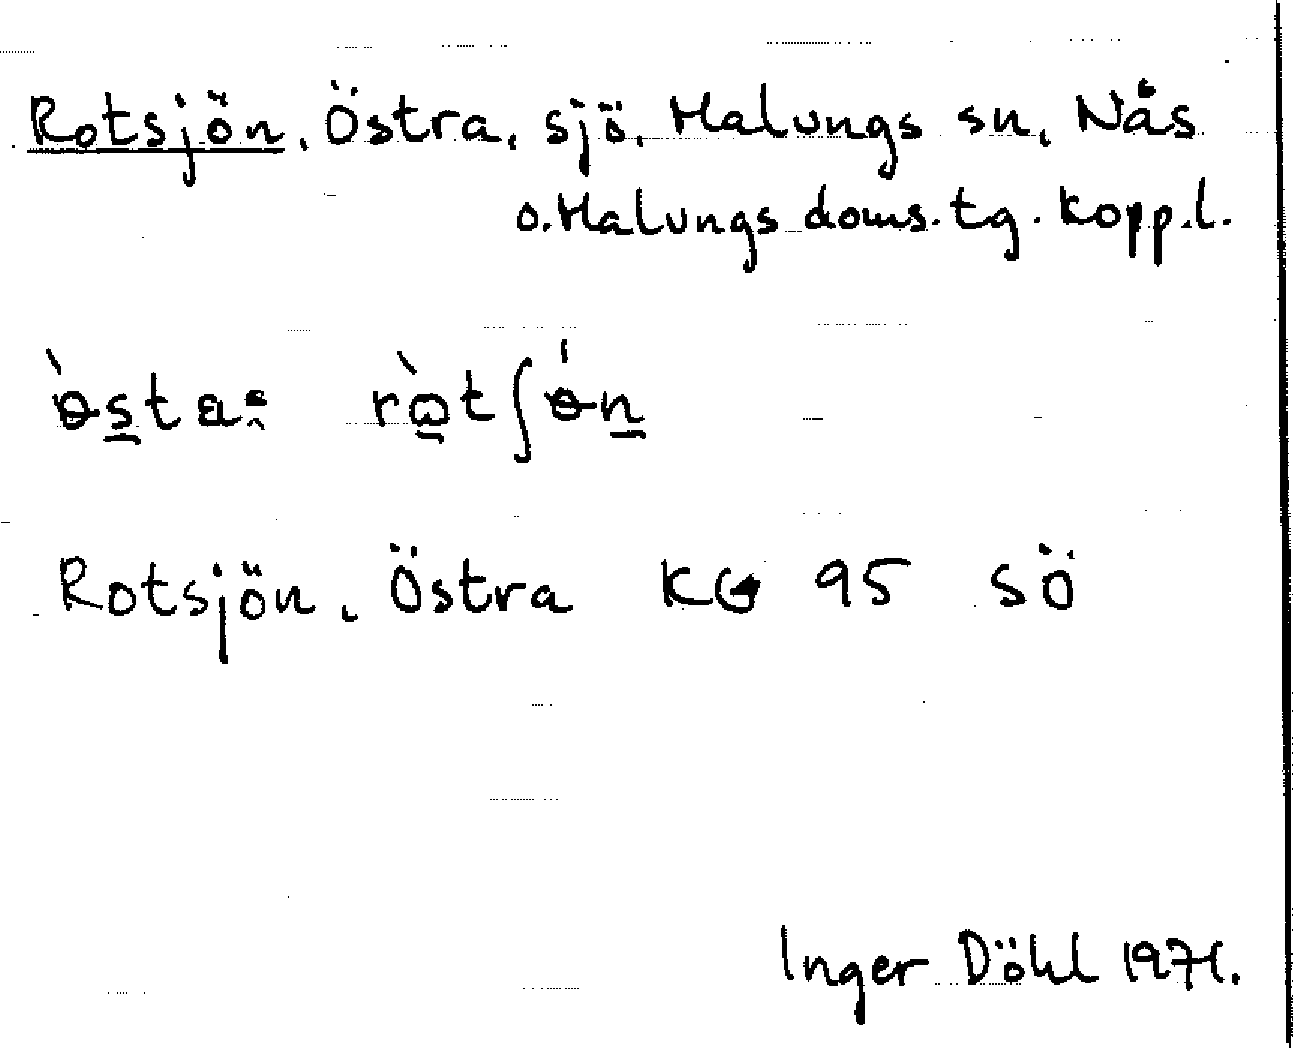 Rotsjön, Östra, sjö, Malungs sn, Nås
o. Malungs doms. tg. Kopp.l.
Rotsjön, Östra KG 95 SÖ
Inger Döhl 1971.